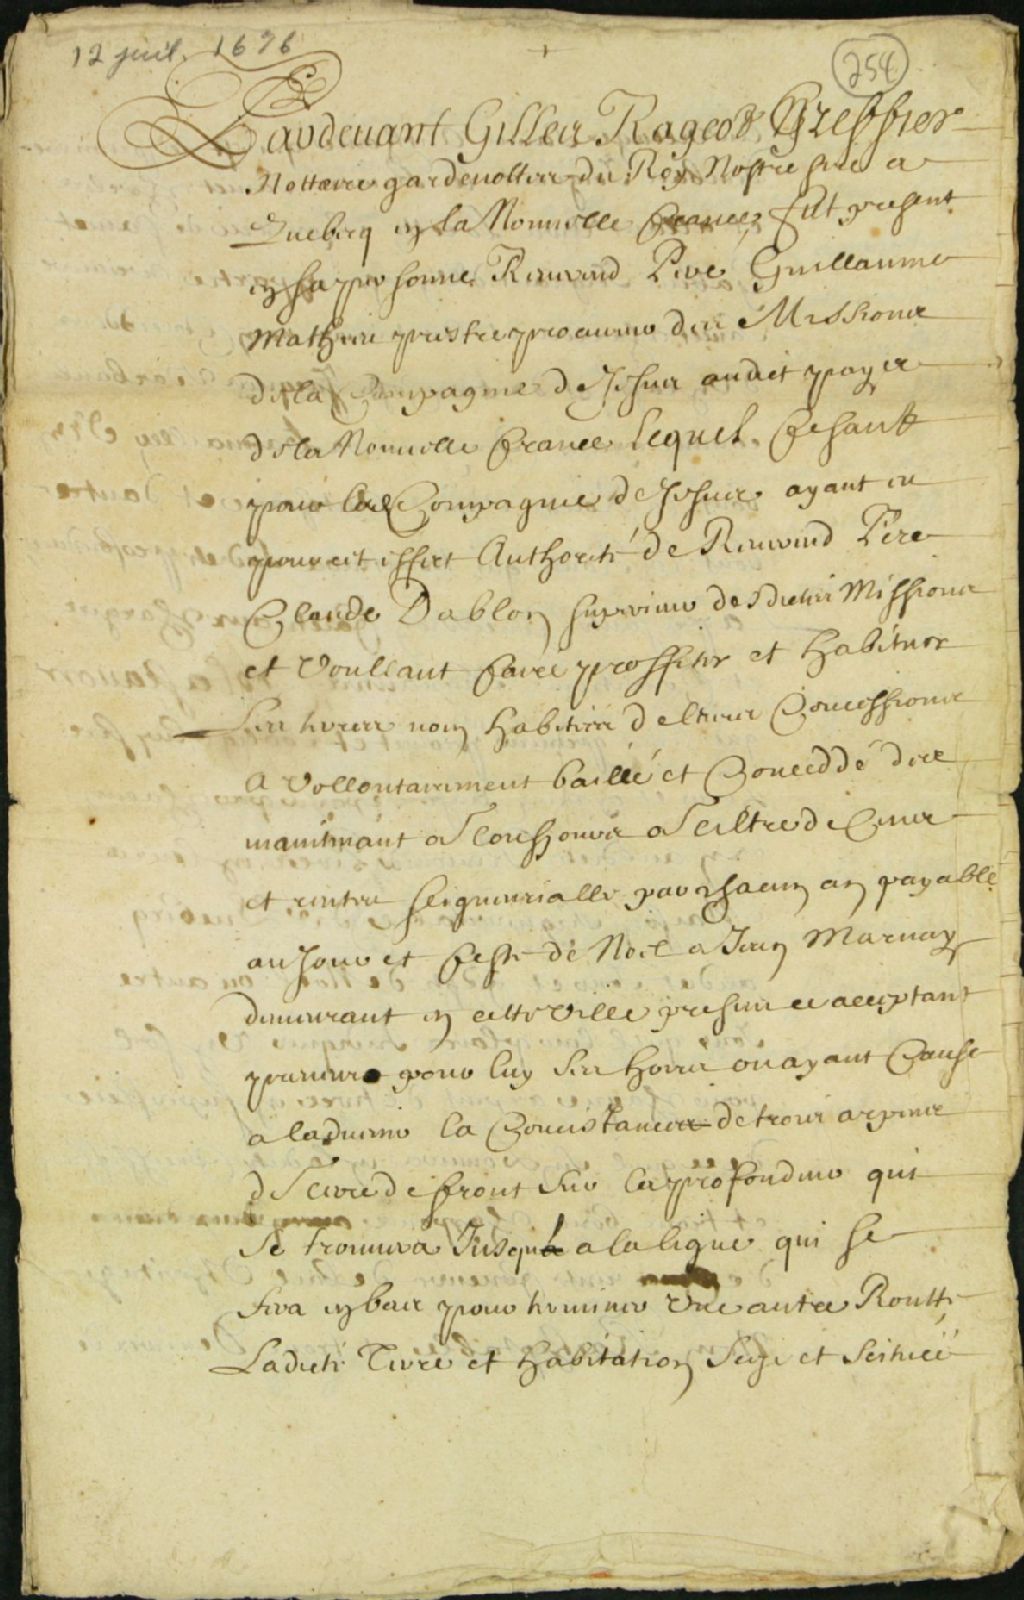 12 juil. 1676
254
Pardevant Gilles Rageot Greffier
Nottaire gardenottes du Roy Nostre sire a
Quebecq en la Nouvelle France, fut present
en sa personne Reverend Pere Guillaume
Mathieu prestre procureur des Missions
de la Compagnie de Jesus audict pays
de la Nouvelle France lequel faisant
pour lad Compagnie de Jesus ayant eu
pour cet effect Authorité de Reverend Pere
Claude Dablon superieur desdictes Missions
et Voullant faire proffiter et habituer
les terres non habitées de leurs Concessions
A Vollontairement baillé et Conceddé des
maintenant a Tousjours a Tiltre de Cens
et rentes seigneurialles par chacun an payable
au Jour et feste de Noel a Jean Marnay
demeurant en cette Ville present ce acceptant
preneur pour luy ses hoirs ou ayant Cause
a ladvenir la Concistance de trois arpens
de Terre de front sur la proffondeur qui
se trouvera Jusqu a la ligne qui se
fera en bas pour terminer Une autre Routte
Ladicte Terre et habitation Size et Scituée